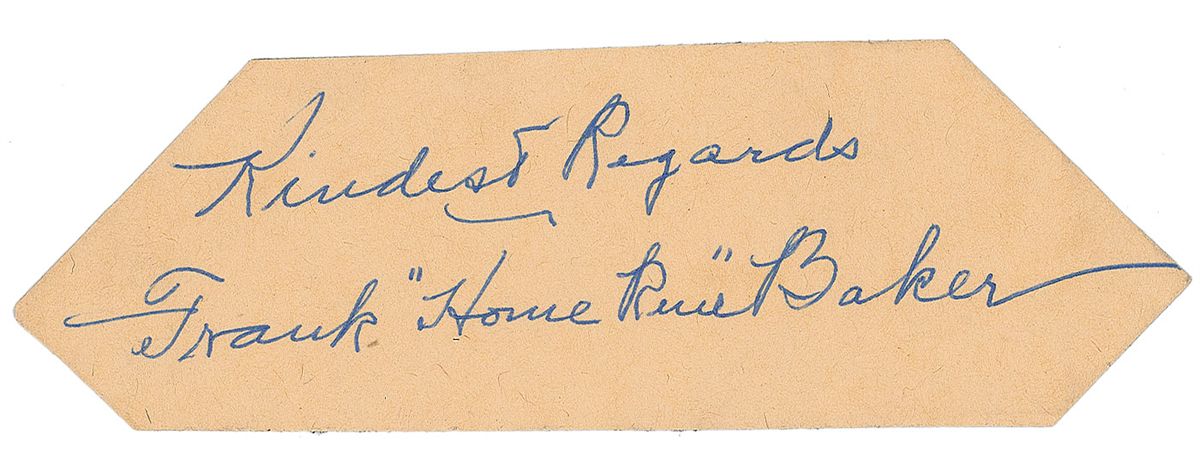 Kindest Regards
Frank "Home Run" Baker